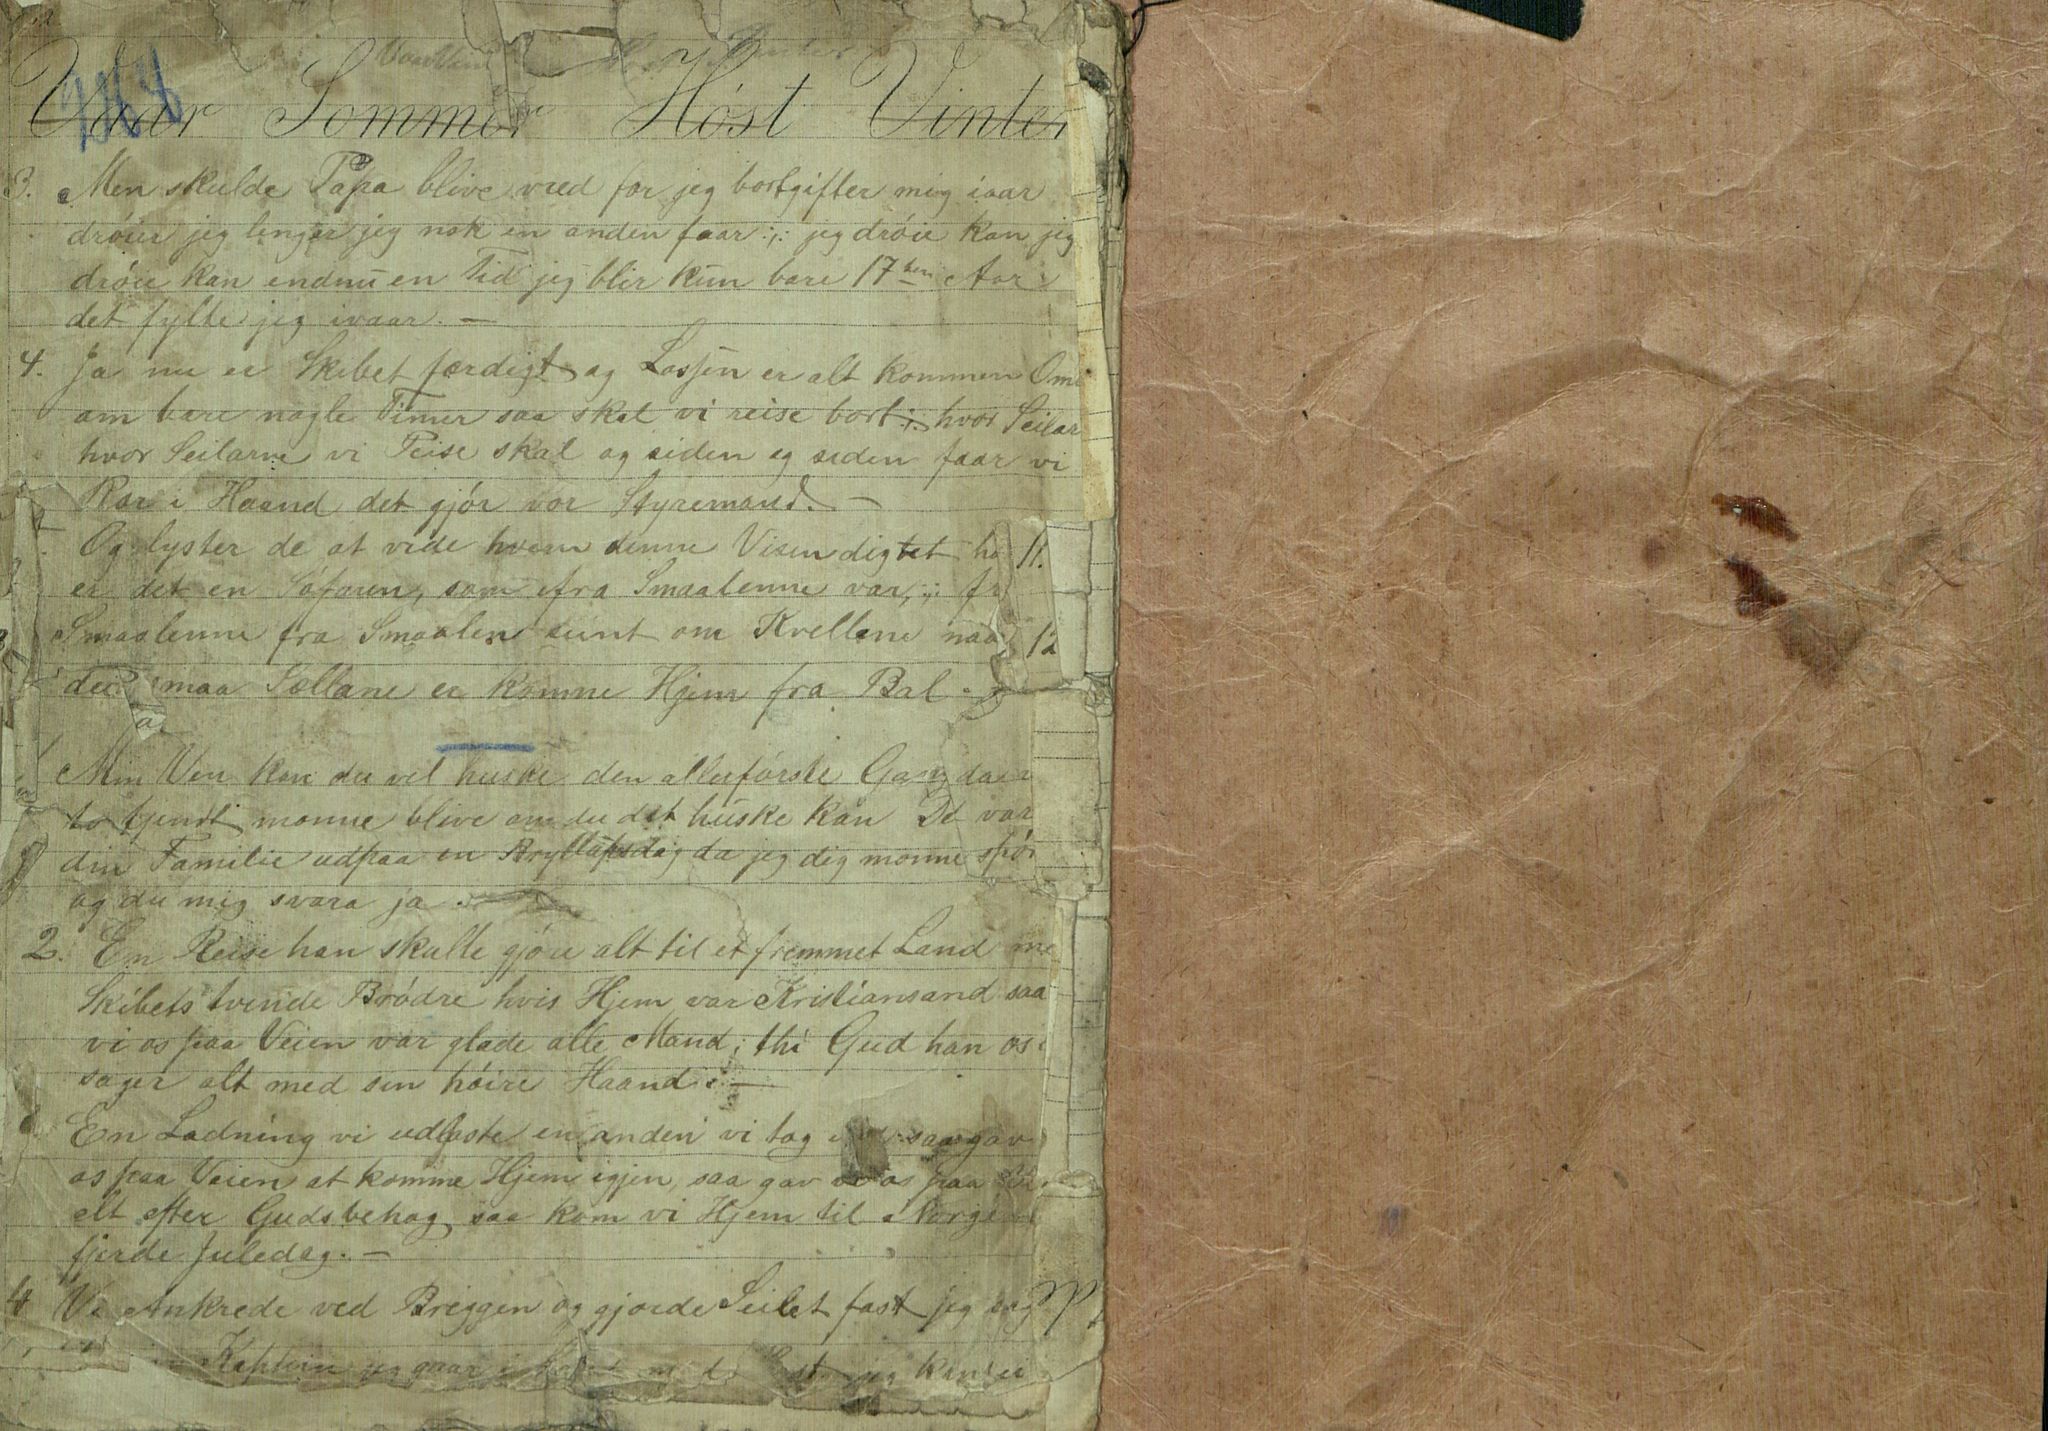 Vaar Sommer Höst Vinter
3. Men skulde Papa blive vred for jeg bortgifter mig ivar
dröier jeg lenger jeg nok en anden faar :,: jeg dröie kan jeg
dröie kan endnu en Tid jeg blir kun bare 17 ten Aar
det fylte jeg ivaar. —
4. Ja nu er Skibet færdigt og Losjen er alt kommen Om
om bare nogle Timer saa skal vi reise bort :,: hvor Seilar
hvor Seilarne vi Reise skal og siden og siden faar vi
Ror i Haand det gjör vor Styremand. —
Og lyster de at vide hvem denne Visen digtet ha
er det en Söfaren, som ifra Smaalenne var, :,: fr
Smaalenne fra Smaalen sunt om Kvellane naa
der smaa Sællane er komne Hjem fra Bal
11.
12
a
Min Ven kan du vel huske den allerförste Gang da
to kjendt monne blive om du det huske kan Det var
din Familie udpaa en Bryllupsdag da jeg dig monne spör
og du mig svara ja
2. En Reise han skulle gjöre alt til et fremmet Land me
Skibets tvende Brödre hvis Hjem var Kristiansand saa
vi os paa Veien var glade alle Mand, thi Gud han os
sager alt med sin höire Haand. —
En Ladning vi udloste en anden vi tog saa gav
os paa Veien at komme Hjem igjen, saa gav vi os paa
alt efter Guds behag saa kom vi Hjem til Norge
fjerde Juledag. —
4 Vi Ankrede ved Briggen og gjorde Seilet fast jeg sag
Kaptein jeg gaar i jeg kan ei